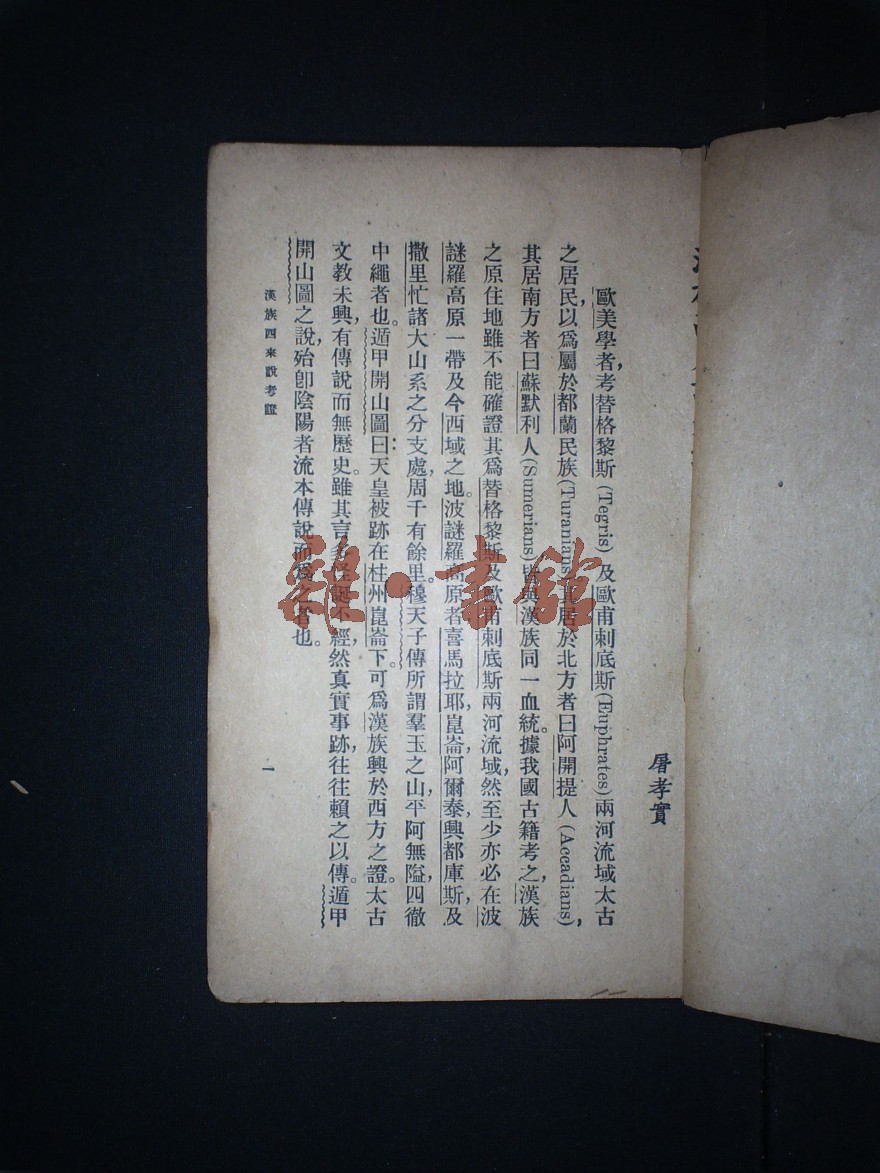 屠孝實
歐美學者，考替格黎斯(Tegris)及歐甫剌底斯(Euphrates)兩河流域太古
之居民，以爲屬於都蘭民族(Turanians)其居於北方者曰阿開提人(Accadians)，
其居南方者曰蘇默利人(Sumerians)皆與漢族同一血統。據我國古籍考之，漢族
之原住地雖不能確證其爲替格黎斯及歐甫剌底斯兩河流域，然至少亦必在波
謎羅高原一帶及今西域之地。波謎羅高原者喜馬拉耶，崑崙，阿爾泰，興都庫斯，及
撒里忙諸大山系之分支處，周千有餘里。穆天子傳所謂羣玉之山，平阿無隘，四徹
中繩者也。遁甲開山圖曰：天皇被跡在柱州崑崙下。可爲漢族興於西方之證。太古
文教未興，有傳說而無歷史。雖其言多怪誕不經，然真實事跡，往往賴之以傳。遁甲
開山圖之說，殆卽陰陽者流本傳說而爲之者也。
漢族西來說考證
一
雜·書館